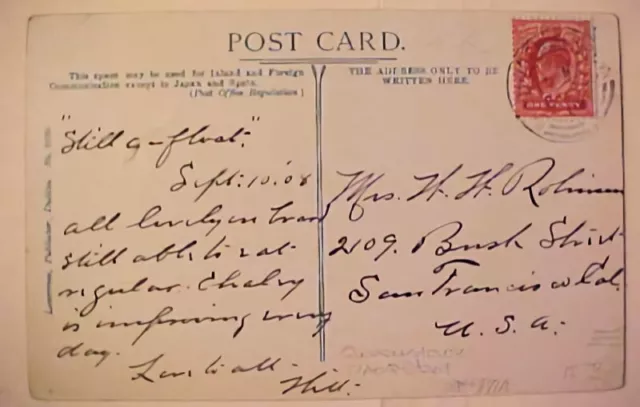 POST CARD.
This space may be used for Inland and Foreign
Communication except to Japan and Spain.
(Post Office Regulation)
THE ADDRESS ONLY TO BE
WRITTEN HERE.
ONE PENNY
"Still a-float."
Sept. 10. '08
all lovely on board
still able to eat
regular.
is improving every
day.
Love to all.
Mrs. W. H. Robinson
2109. Bush Street
San Francisco Cal.
U. S. A.